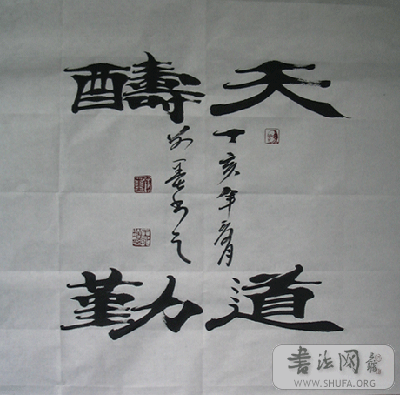 天道
醻勤
丁亥年 月
墨书之
書法网
WWW.SHUFA.ORG